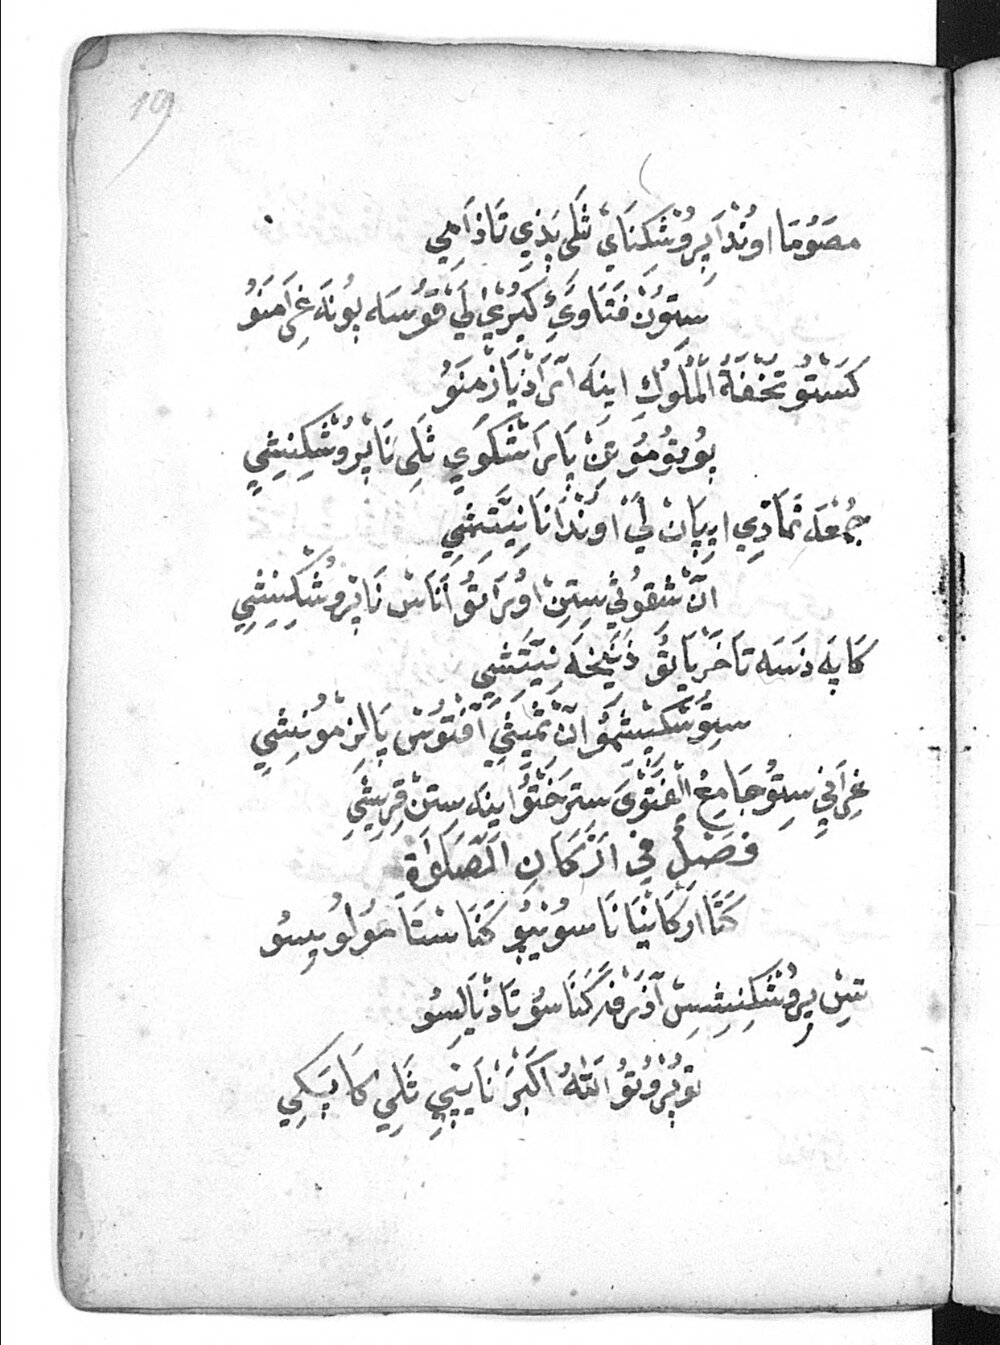 19
مصَوُمَا اوُنْدَا پِرُوْشَكِنَايْ ثَلَى بَذِي تَاذْ اَمِي
سِتوُنْ فَتَاوَئِ كَبِرُيْ لَيْ قَوُسَه بوُنَه غِرَامَنَوُ
كَسَسْتوُ تحْفَةُ الْمُلوُكِ اينَه آئرَاذْ يَازْمَنَوُ
بوُتوُموُ عنْ پَارَاسْكَوِي ثَلِى نَا پِرُوشْكِنِشِي
جُمْعَه نَمَادِي اپِپَانْ لَيْ اوُنْدَا نَا نِيَّتِشِي
انْ سْقوُتي سِتِنْ اوُرَاتوُ اَنَاسْ نَا پِرُوشْكِنِشِي
كَاپَه ذَسَه تَاخَرْيَايتوُ ذَنِيخَه نِيَّتِشِي
سِتوُ سْكَيسِمْوُ انْ تمْيثِي آفْتوُسْ پَالِنْ موُنِشِي
غِرَافِي سِتوُ جَامِعُ الْفَتْوَى سِتِرَخْتوُ اينَه سِتِنْ قِرِيشِي
فَصْلٌ فِي اَرْكَانِ الصَّلَوَاةِ
كَتَا ارْكَانْيَا نَا سوُ نِيپوُ كَنَا سْتَا موُلوُپِسوُ
تيِنْ پِرُوشْكِنِشِسْ آذَرْفَه كَنَا سوُتَا دنْيَالِسوُ
توُ پْرُوتوُ اللّٰهُ اكْبَرْ نَايِپِي ثَلِي كَاپَسْكِي